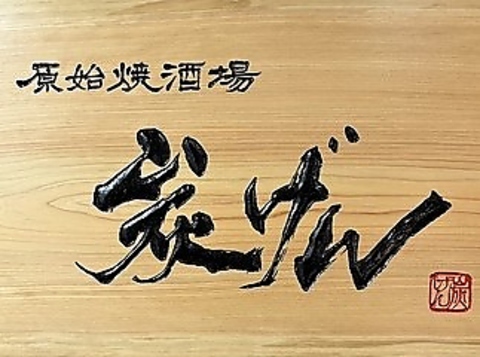 原始焼酒場
炭げん